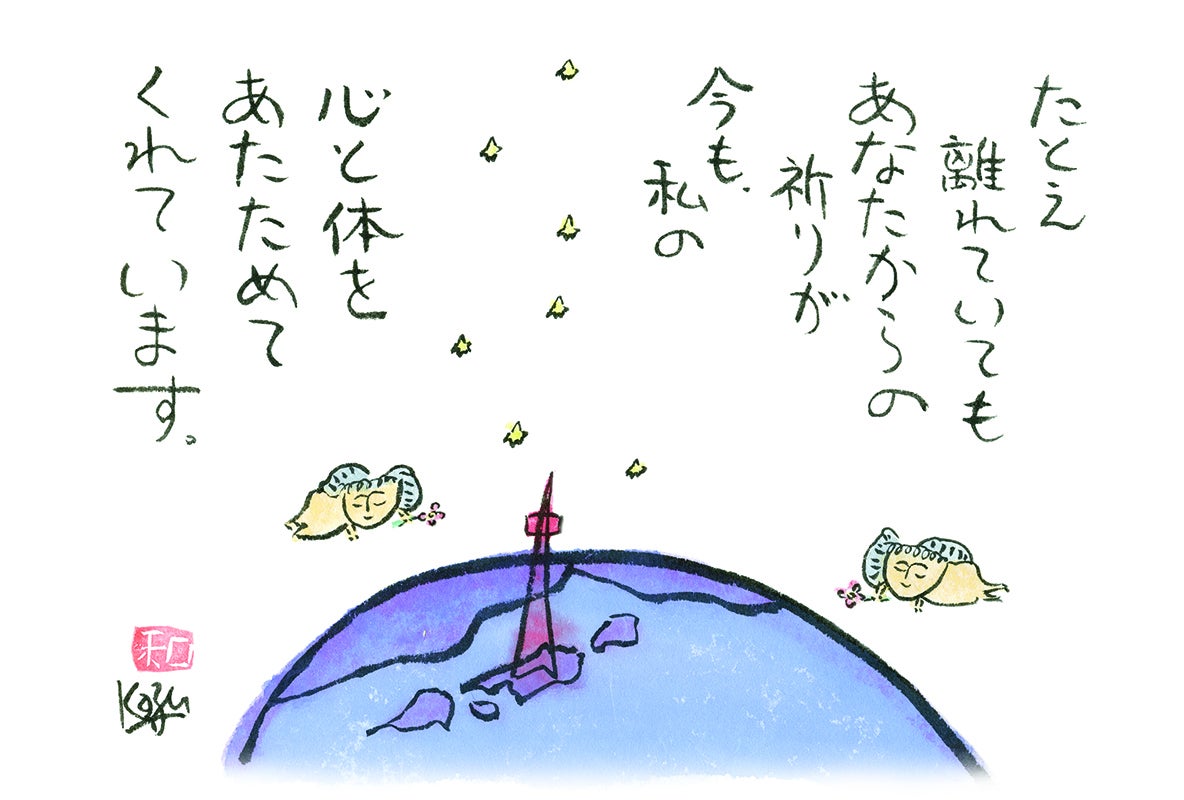 たとえ
離れていても
あなたからの
祈りが
今も、
私の
心と体を
あたためて
くれています。
和
Kazu